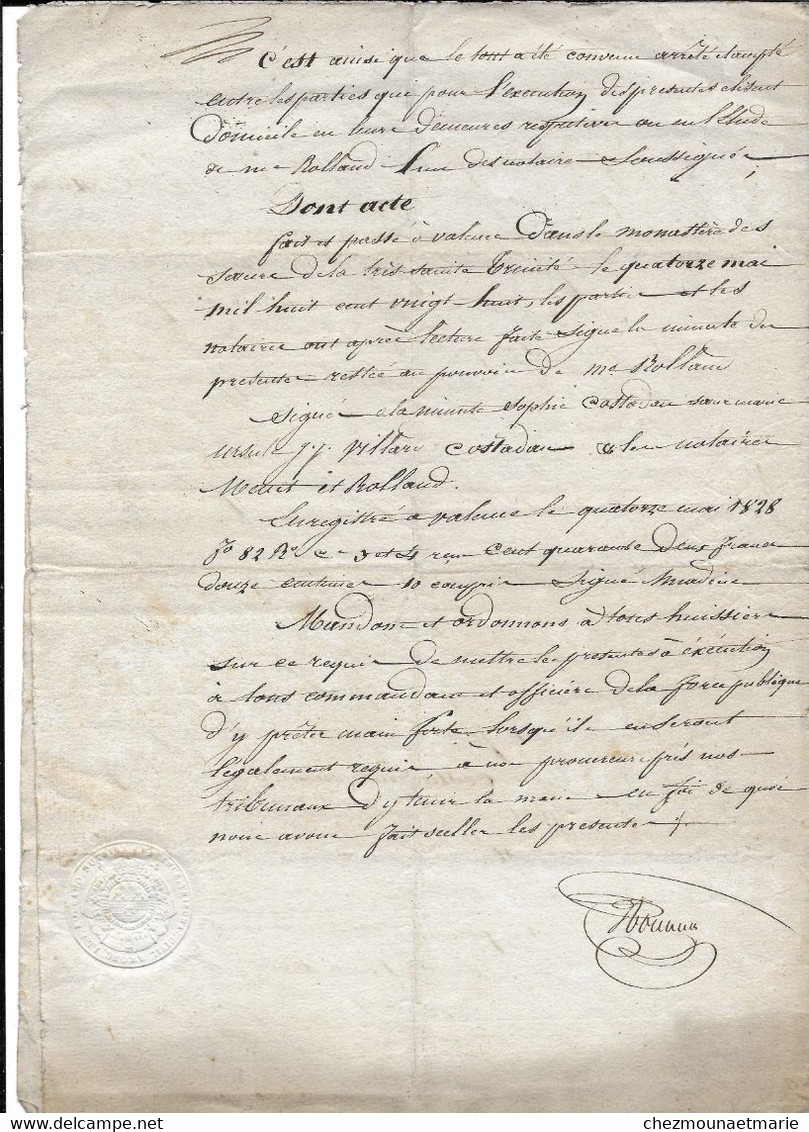 C'est ainsi que le tout a été convenu arrêté et accepté
entre les parties qui pour l'exécution des presentes elisent
Domicile en leurs demeures respectives ou en l'Etude
de me Rolland l'un des notaires Soussignés
Dont acte
fait et passé à valence dans le monastère des
sœurs de la très sainte Trinité le quatorze mai
mil huit cent vingt-huit, les parties et les
notaires ont après lecture faite signé la minute des
presentes restée au pouvoir de me Rolland
Signé à la minute Sophie Costadau sœur marie
ursule J. J. Villard Costadau & les notaires
et Rolland.
Enregistré à valence le quatorze mai 1828
fo 82 Ro Ce 3 et 4 reçu Cent quarante Deux francs
douze centimes 10e compris Signé
Mandons et ordonnons à tous huissiers
sur ce requis de mettre les presentes à éxécution
à tous commandans et officiers de la force publique
d'y prêter main forte lorsqu'ils en seront
légalement requis à nos procureurs près nos
tribunaux d'y tenir la main en foi de quoi
nous avons fait sceller les presentes ;.
chezmounaetmarie.delcampe.net